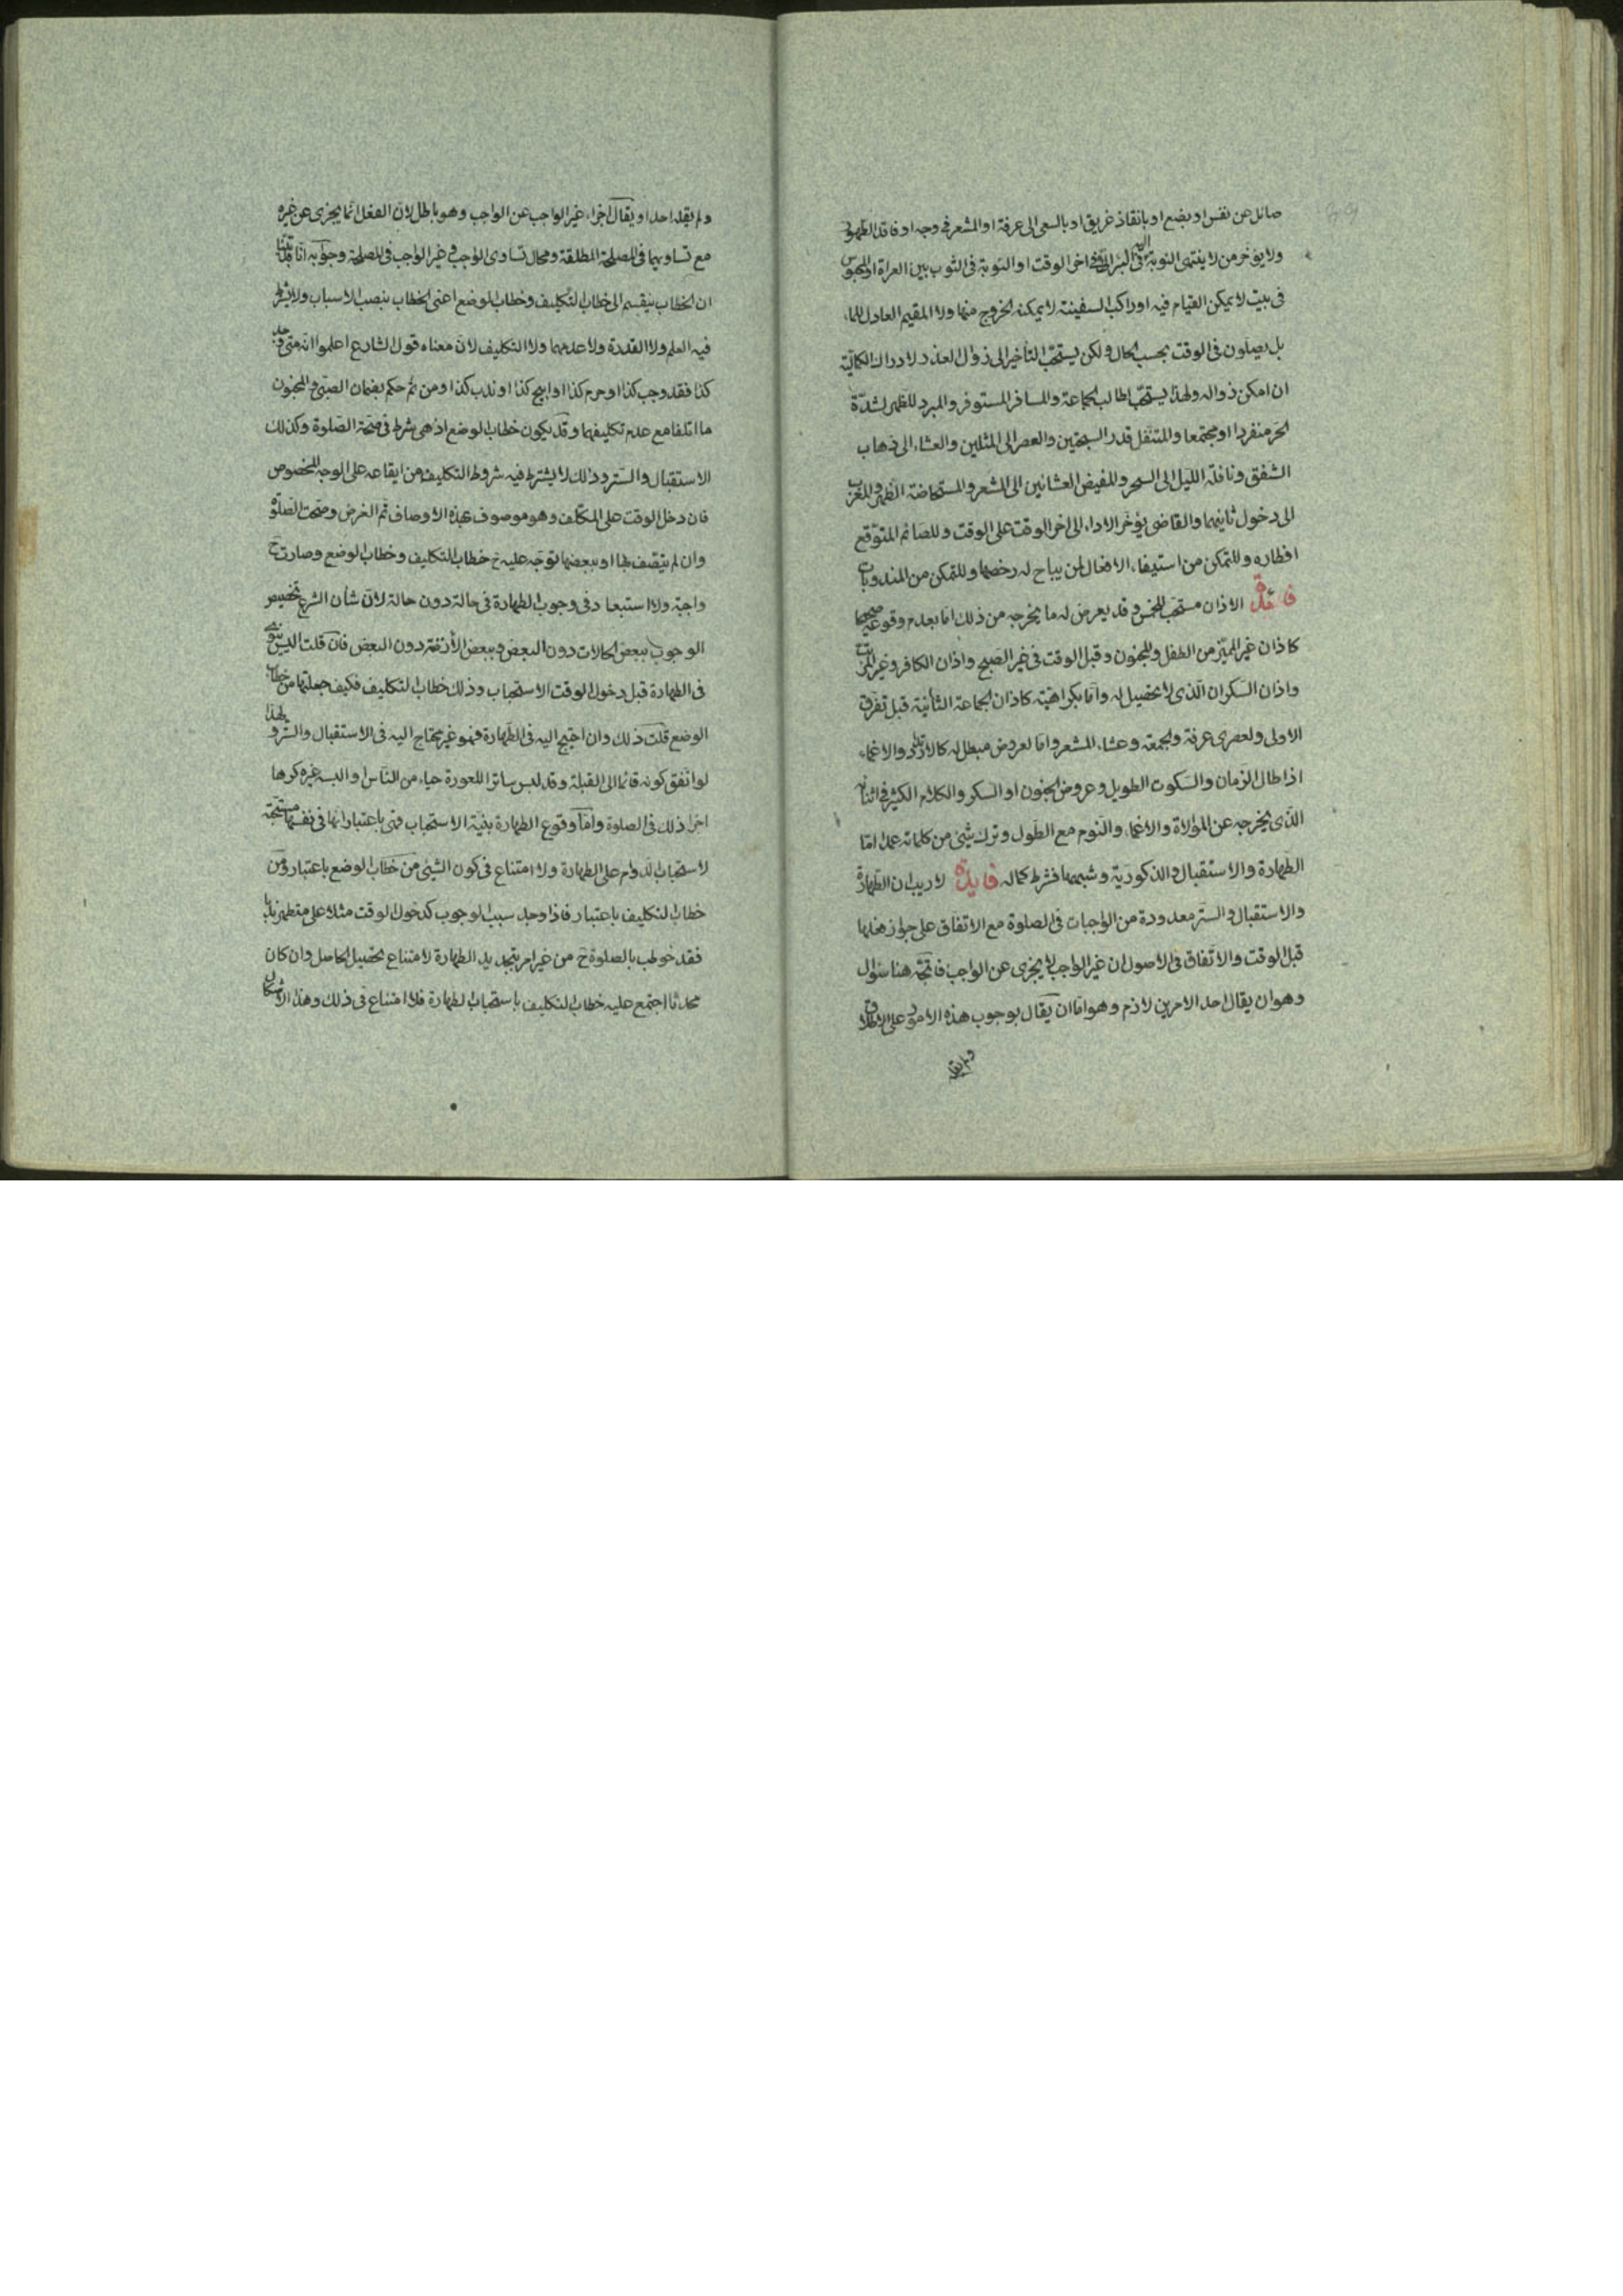 صائل عن نفس او بضع او بانقاذ غريق او بالسعى الى عرفة او المشعر فى وجه او فاقد الطهور
ولا يؤخر من لا ينتهى النوبة اليه فى البئر الا فى اخر الوقت او النوبة فى الثوب بين العراة او المحبوس
فى بيت لا يمكن القيام فيه او راكب السفينة لا يمكنه الخروج منها ولا المقيم العادل للماء
بل يصلون فى الوقت بحسب الحال ولكن يستحب التأخير الى زوال العذر لادراك الكمالية
ان امكن زواله ولهذا يستحب لطالب الجماعة وللمسافر المستوفر والمبرد للظهر لشدة
الحر منفردا او مجتمعا والمتنفل قدر السبحتين والعصر الى المثلين والعشاء الى ذهاب
الشفق ونافلة الليل الى السحر وللمفيض العشائين الى المشعر والمستحاضة الظهر والمغرب
الى دخول ثانيهما والقاضى يؤخر الاداء الى اخر الوقت على الوقت وللصائم المتوقع
افطاره وللتمكن من استيفاء الافعال لمن يباح له رخصها وللتمكن من المندوبات
فائدة الاذان مستحب للخمس وقد يعرض له ما يخرجه من ذلك اما بعدم وقوعه صحيحا
كاذان غير المميز من الطفل والمجنون وقبل الوقت فى غير الصبح واذان الكافر وغير المرتب
واذان السكران الذى لا تحصيل له واما بكراهته كاذان الجماعة الثانية قبل تفرق
الاولى ولعصرى عرفة والجمعة وعشاء المشعر واما لعروض مبطل له كالارتداد والاغماء
اذا طال الزمان والسكوت الطويل وعروض الجنون او السكر والكلام الكثير فى اثنائه
الذى يخرجه عن الموالاة والاغماء والنوم مع الطول وترك شئ من كلماته عمدا اما
الطهارة والاستقبال والذكورية وشبهها فشرط كماله فايدة لا ريب ان الطهارة
والاستقبال والستر معدودة من الواجبات فى الصلوة مع الاتفاق على جواز فعلها
قبل الوقت والاتفاق فى الاصول ان غير الواجب لا يجزى عن الواجب فاتجه هنا سؤال
وهو ان يقال احد الامرين لازم وهو اما ان يقال بوجوب هذه الامور على الاطلاق
ولم يقل
ولم يقله احد او يقال اجزاء غير الواجب عن الواجب وهو باطل لان الفعل انما يجزى عن غيره
مع تساويهما فى المصلحة المطلقة ومحال تساوى الواجب وغير الواجب فى المصلحة وجوابه انا قد بينا
ان الخطاب ينقسم الى خطاب التكليف وخطاب الوضع اعنى الخطاب بنصب الاسباب ولا يشترط
فيه العلم ولا القدرة ولا عدمهما ولا التكليف لان معناه قول الشارع اعلموا انه متى وجد
كذا فقد وجب كذا او حرم كذا او ابيح كذا او ندب كذا ومن ثم حكم بضمان الصبى والمجنون
ما اتلفا مع عدم تكليفهما وقد يكون خطاب الوضع اذ هى شرط فى صحة الصلوة وكذلك
الاستقبال والستر وذلك لا يشترط فيه شروط التكليف من ايقاعه على الوجه المخصوص
فان دخل الوقت على المكلف وهو موصوف بهذه الاوصاف تم الغرض وصحت الصلوة
وان لم يتصف بها او ببعضها توجه عليه ح خطاب التكليف وخطاب الوضع وصارت ح
واجبة ولا استبعاد فى وجوب الطهارة فى حالة دون حالة لان شأن الشرع تخصيص
الوجوب ببعض الحالات دون البعض وببعض الأزمنة دون البعض فان قلت اليس ينوى
فى الطهارة قبل دخول الوقت الاستحباب وذلك خطاب التكليف فكيف جعلتها من خطاب
الوضع قلت ذلك وان احتيج اليه فى الطهارة فهو غير محتاج اليه فى الاستقبال والستر ولهذا
لو اتفق كونه قائما الى القبلة وقد لبس ساترا للعورة حياء من الناس او البسه غيره كرها
اجزا ذلك فى الصلوة واما وقوع الطهارة بنية الاستحباب فمتى باعتبار انها فى نفسها مستحبة
لاستحباب الدوام على الطهارة ولا امتناع فى كون الشئ من خطاب الوضع باعتبار ومن
خطاب التكليف باعتبار فاذا وجد سبب الوجوب كدخول الوقت مثلا على متطهر
فقد خوطب بالصلوة ح من غير امر بتجديد الطهارة لامتناع تحصيل الحاصل وان كان
محدثا اجتمع عليه خطاب التكليف باستحباب الطهارة فلا امتناع فى ذلك وهذا الاشكال